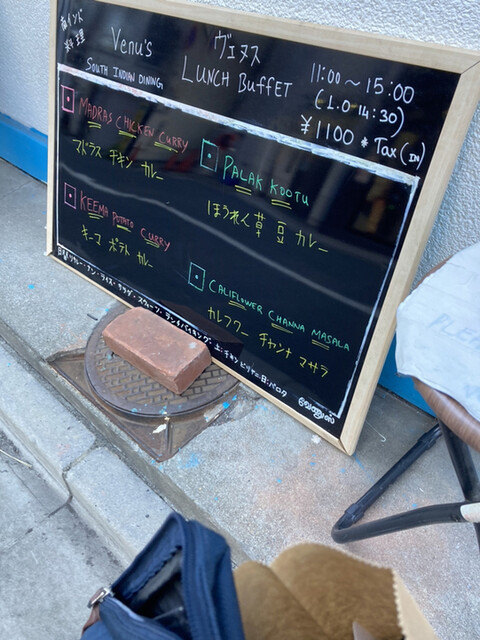 南インド
料理
Venu's
SOUTH INDIAN DINING
ヴェヌス
LUNCH BuffET
11:00～15:00
(L.O 14:30)
¥1100 * Tax(IN)
MADRAS CHICKEN CURRY
マドラス チキン カレー
KEEMA POTATO CURRY
キーマ ポテト カレー
PALAK KOOTU
ほうれん草 豆 カレー
CALIFLOWER CHANNA MASALA
カルフワー チャンナ マサラ
ナン・ライス・サラダ・スウーツ
土:チキン ビリヤニ 日:パロタ